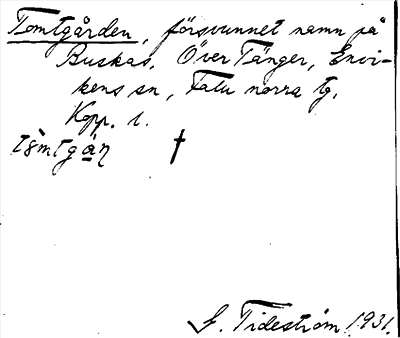 Tomtgården, försvunnet namn på
Buskas, Över Tänger, Envi-
kens sn, Falu norra tg,
Kopp. l.
tômtgan †
G. Tideström 1931.